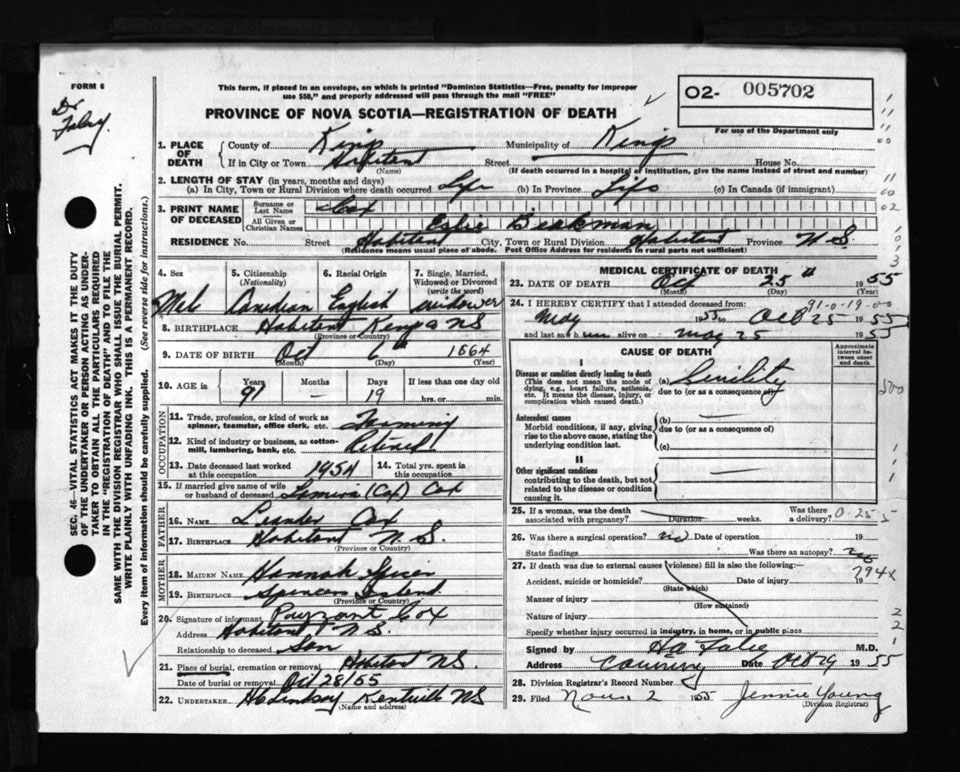 FORM 6
This form, if placed in an envelope, on which is printed "Dominion Statistics—Free, penalty for improper
use $50," and properly addressed will pass through the mail "FREE"
02- 005702
For use of the Department only
Dr
PROVINCE OF NOVA SCOTIA—REGISTRATION OF DEATH
1. PLACE OF DEATH
County of Kings Municipality of Kings
If in City or Town Habitant Street House No.
(Name) (If death occurred in a hospital of institution, give the name instead of street and number)
2. LENGTH OF STAY (in years, months and days)
(a) In City, Town or Rural Division where death occurred Life (b) In Province Life (c) In Canada (if immigrant)
3. PRINT NAME OF DECEASED
Surname or Last Name Cox
All Given or Christian Names Eslie Beakman
RESIDENCE No. Street Habitant City, Town or Rural Division Habitant Province N S
(Residence means usual place of abode. Post Office Address for residents in rural parts not sufficient)
4. Sex 5. Citizenship (Nationality) 6. Racial Origin 7. Single, Married, Widowed or Divorced (write the word)
Male Canadian English widower
8. BIRTHPLACE Habitant Kings NS
(Province or Country)
9. DATE OF BIRTH Oct 6th 1864
(Month) (Day) (Year)
10. AGE in Years 91 Months — Days 19 If less than one day old
hrs. or min.
OCCUPATION
11. Trade, profession, or kind of work as spinner, teamster, office clerk, etc. Farming
12. Kind of industry or business, as cotton-mill, lumbering, bank, etc. Retired
13. Date deceased last worked at this occupation 1954 14. Total yrs. spent in this occupation
15. If married give name of wife or husband of deceased (Cox) Cox
FATHER
16. NAME Leander Cox
17. BIRTHPLACE Habitant N. S.
(Province or Country)
MOTHER
18. MAIDEN NAME Hannah Spicer
19. BIRTHPLACE Spencers Island
(Province or Country)
20. Signature of informant Payzant Cox
Address Habitant N. S.
Relationship to deceased son
21. Place of burial, cremation or removal Habitant NS.
Date of burial or removal Oct 28/55
22. UNDERTAKER H Lindsay Kentville NS
(Name and address)
MEDICAL CERTIFICATE OF DEATH
23. DATE OF DEATH Oct 25th 1955
(Month) (Day) (Year)
24. I HEREBY CERTIFY that I attended deceased from: 91-0-19-00
May 1955 to Oct 25 1955
and last saw him alive on May 25 1955
CAUSE OF DEATH
Approximate interval between onset and death
I
Disease or condition directly leading to death
(This does not mean the mode of dying, e.g., heart failure, asthenia, etc. It means the disease, injury, or complication which caused death.)
(a) Senility
due to (or as a consequence of)
Antecedent causes
Morbid conditions, if any, giving rise to the above cause, stating the underlying condition last.
(b)
due to (or as a consequence of)
(c)
II
Other significant conditions
contributing to the death, but not related to the disease or condition causing it.
25. If a woman, was the death associated with pregnancy? Duration weeks. Was there a delivery? 0-25-5
26. Was there a surgical operation? no Date of operation 19
State findings Was there an autopsy? no
27. If death was due to external causes (violence) fill in also the following:— 794x
Accident, suicide or homicide? Date of injury 19
(State which)
Manner of injury
(How sustained)
Nature of injury
Specify whether injury occurred in industry, in home, or in public place
Signed by M.D.
Address Canning Date Oct 29 1955
28. Division Registrar's Record Number
29. Filed Nov 2 1955 Jennie Young
(Division Registrar)
SEC. 46—VITAL STATISTICS ACT MAKES IT THE DUTY
OF THE UNDERTAKER OR PERSON ACTING AS UNDER-
TAKER TO OBTAIN ALL THE PARTICULARS REQUIRED
IN THE "REGISTRATION OF DEATH" AND TO FILE THE
SAME WITH THE DIVISION REGISTRAR WHO SHALL ISSUE THE BURIAL PERMIT.
WRITE PLAINLY WITH UNFADING INK. THIS IS A PERMANENT RECORD.
Every item of information should be carefully supplied. (See reverse side for instructions.)